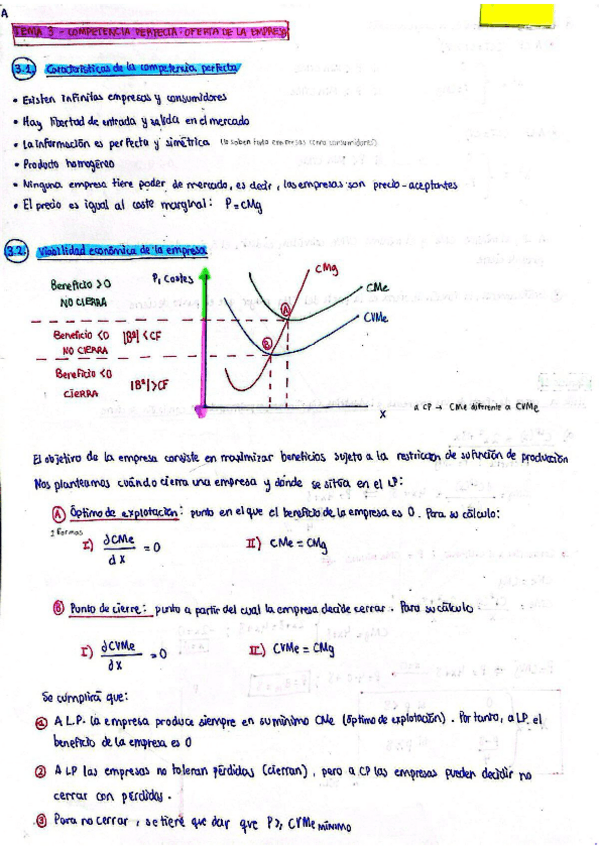 A
TEMA 3 - COMPETENCIA PERFECTA: OFERTA DE LA EMPRESA
3.1. Características de la competencia perfecta
• Existen infinitas empresas y consumidores
• Hay libertad de entrada y salida en el mercado
• La información es perfecta y simétrica (lo saben tanto empresas como consumidores)
• Producto homogéneo
• Ninguna empresa tiene poder de mercado, es decir, las empresas son precio-aceptantes
• El precio es igual al coste marginal: P=CMg
3.2. Viabilidad económica de la empresa
P, Costes
CMg
CMe
CVMe
Beneficio >0
NO CIERRA
A
Beneficio <0 |Bº| <CF
NO CIERRA
B
Beneficio <0
CIERRA |Bº|>CF
X
a CP → CMe diferente a CVMe
El objetivo de la empresa consiste en maximizar beneficios sujeto a la restricción de su función de producción
Nos planteamos cuándo cierra una empresa y dónde se sitúa en el LP:
A Óptimo de explotación: punto en el que el beneficio de la empresa es 0. Para su cálculo:
2 formas
I) ∂CMe/dx = 0 II) CMe = CMg
B Punto de cierre: punto a partir del cual la empresa decide cerrar. Para su cálculo
I) ∂CVMe/dx = 0 II) CVMe = CMg
Se cumplirá que:
1 A L.P. la empresa produce siempre en su mínimo CMe (óptimo de explotación). Por tanto, a LP. el
beneficio de la empresa es 0
2 A LP las empresas no toleran pérdidas (cierran), pero a CP las empresas pueden decidir no
cerrar con pérdidas.
3 Para no cerrar, se tiene que dar que P≥ CVMe mínimo